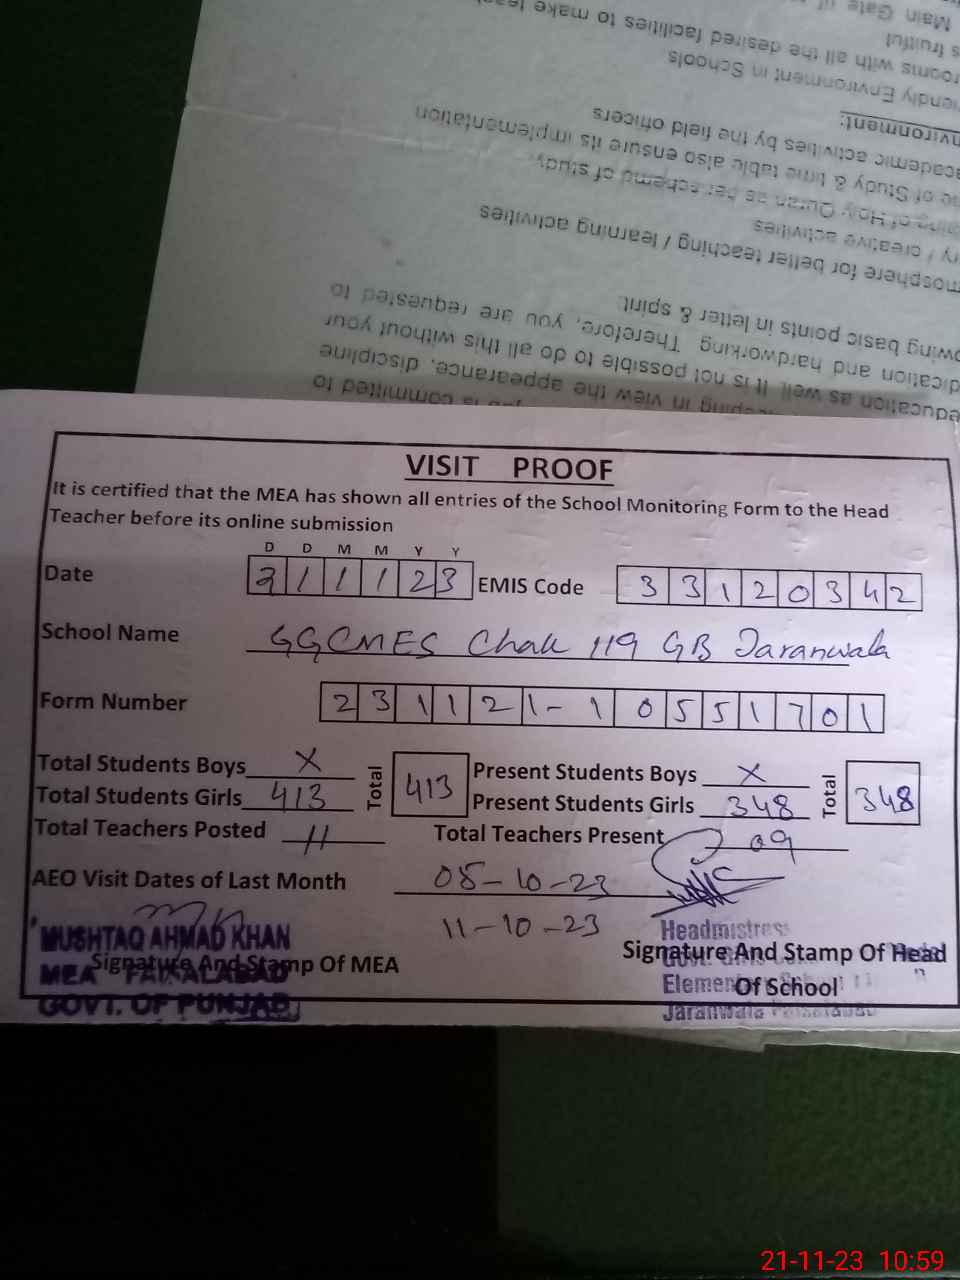 Main Gate of
s fruitful
rooms with all the desired facilities to make
iendly Environment in Schools
nvironment:
academic activities by the field officers
e of Study & time table also ensure its implementation
ning of Holy Quran as per scheme of study.
ry / creative activities
mosphere for better teaching / learning activities
owing basic points in letter & spirit.
dication and hardworking. Therefore, you are requested to
education as well. It is not possible to do all this without your
keeping in view the appearance, discipline
is committed to
VISIT PROOF
It is certified that the MEA has shown all entries of the School Monitoring Form to the Head
Teacher before its online submission
D D M M Y Y
Date 21 11 23 EMIS Code 33120342
School Name GGCMES Chak 119 GB Jaranwala
Form Number 231121-10551701
Total Students Boys X Total 413 Present Students Boys X Total 348
Total Students Girls 413 Present Students Girls 348
Total Teachers Posted 11 Total Teachers Present 09
AEO Visit Dates of Last Month 05-10-23
11-10-23
MUSHTAQ AHMAD KHAN
MEA FAISALABAD
GOVT. OF PUNJAB
Signature And Stamp Of MEA
Headmistress
Signature And Stamp Of Head
Of School
Jaranwala Faisalabad
21-11-23 10:59